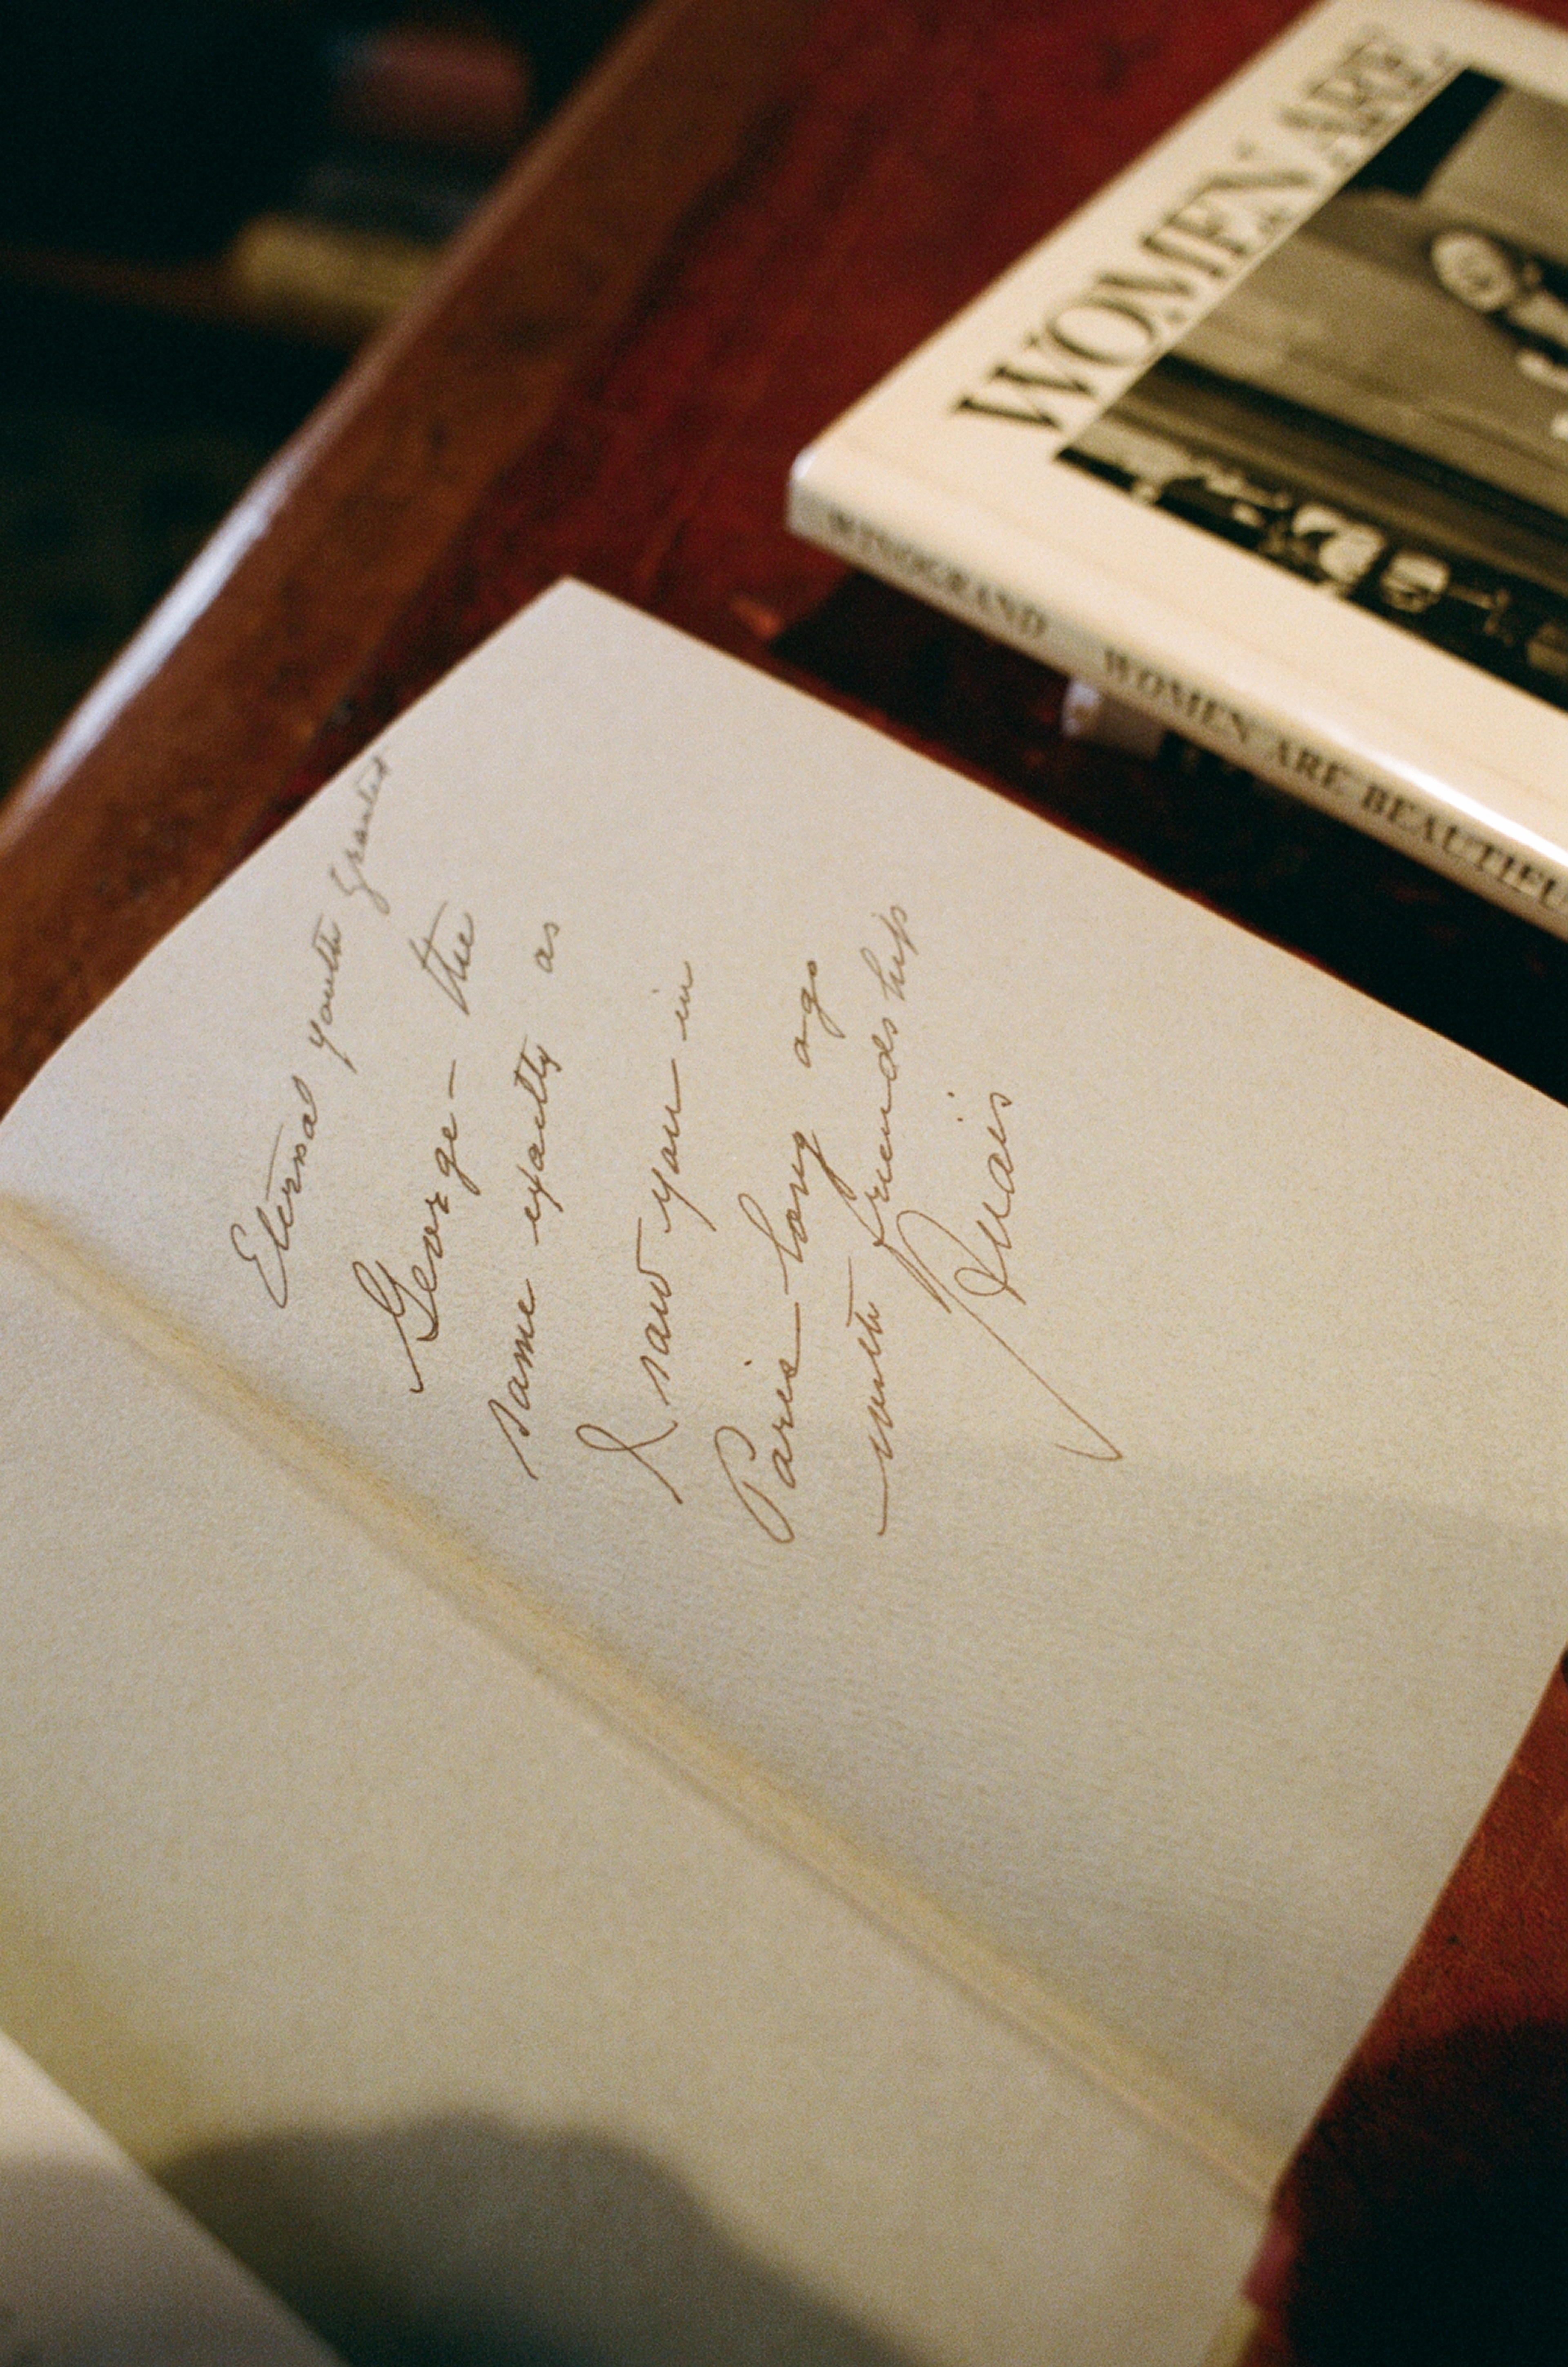 WOMEN ARE
WINOGRAND WOMEN ARE BEAUTIFU
Eternal youth granted
George - the
same exactly as
I saw you in
Paris - long ago
with friendship
Anaïs